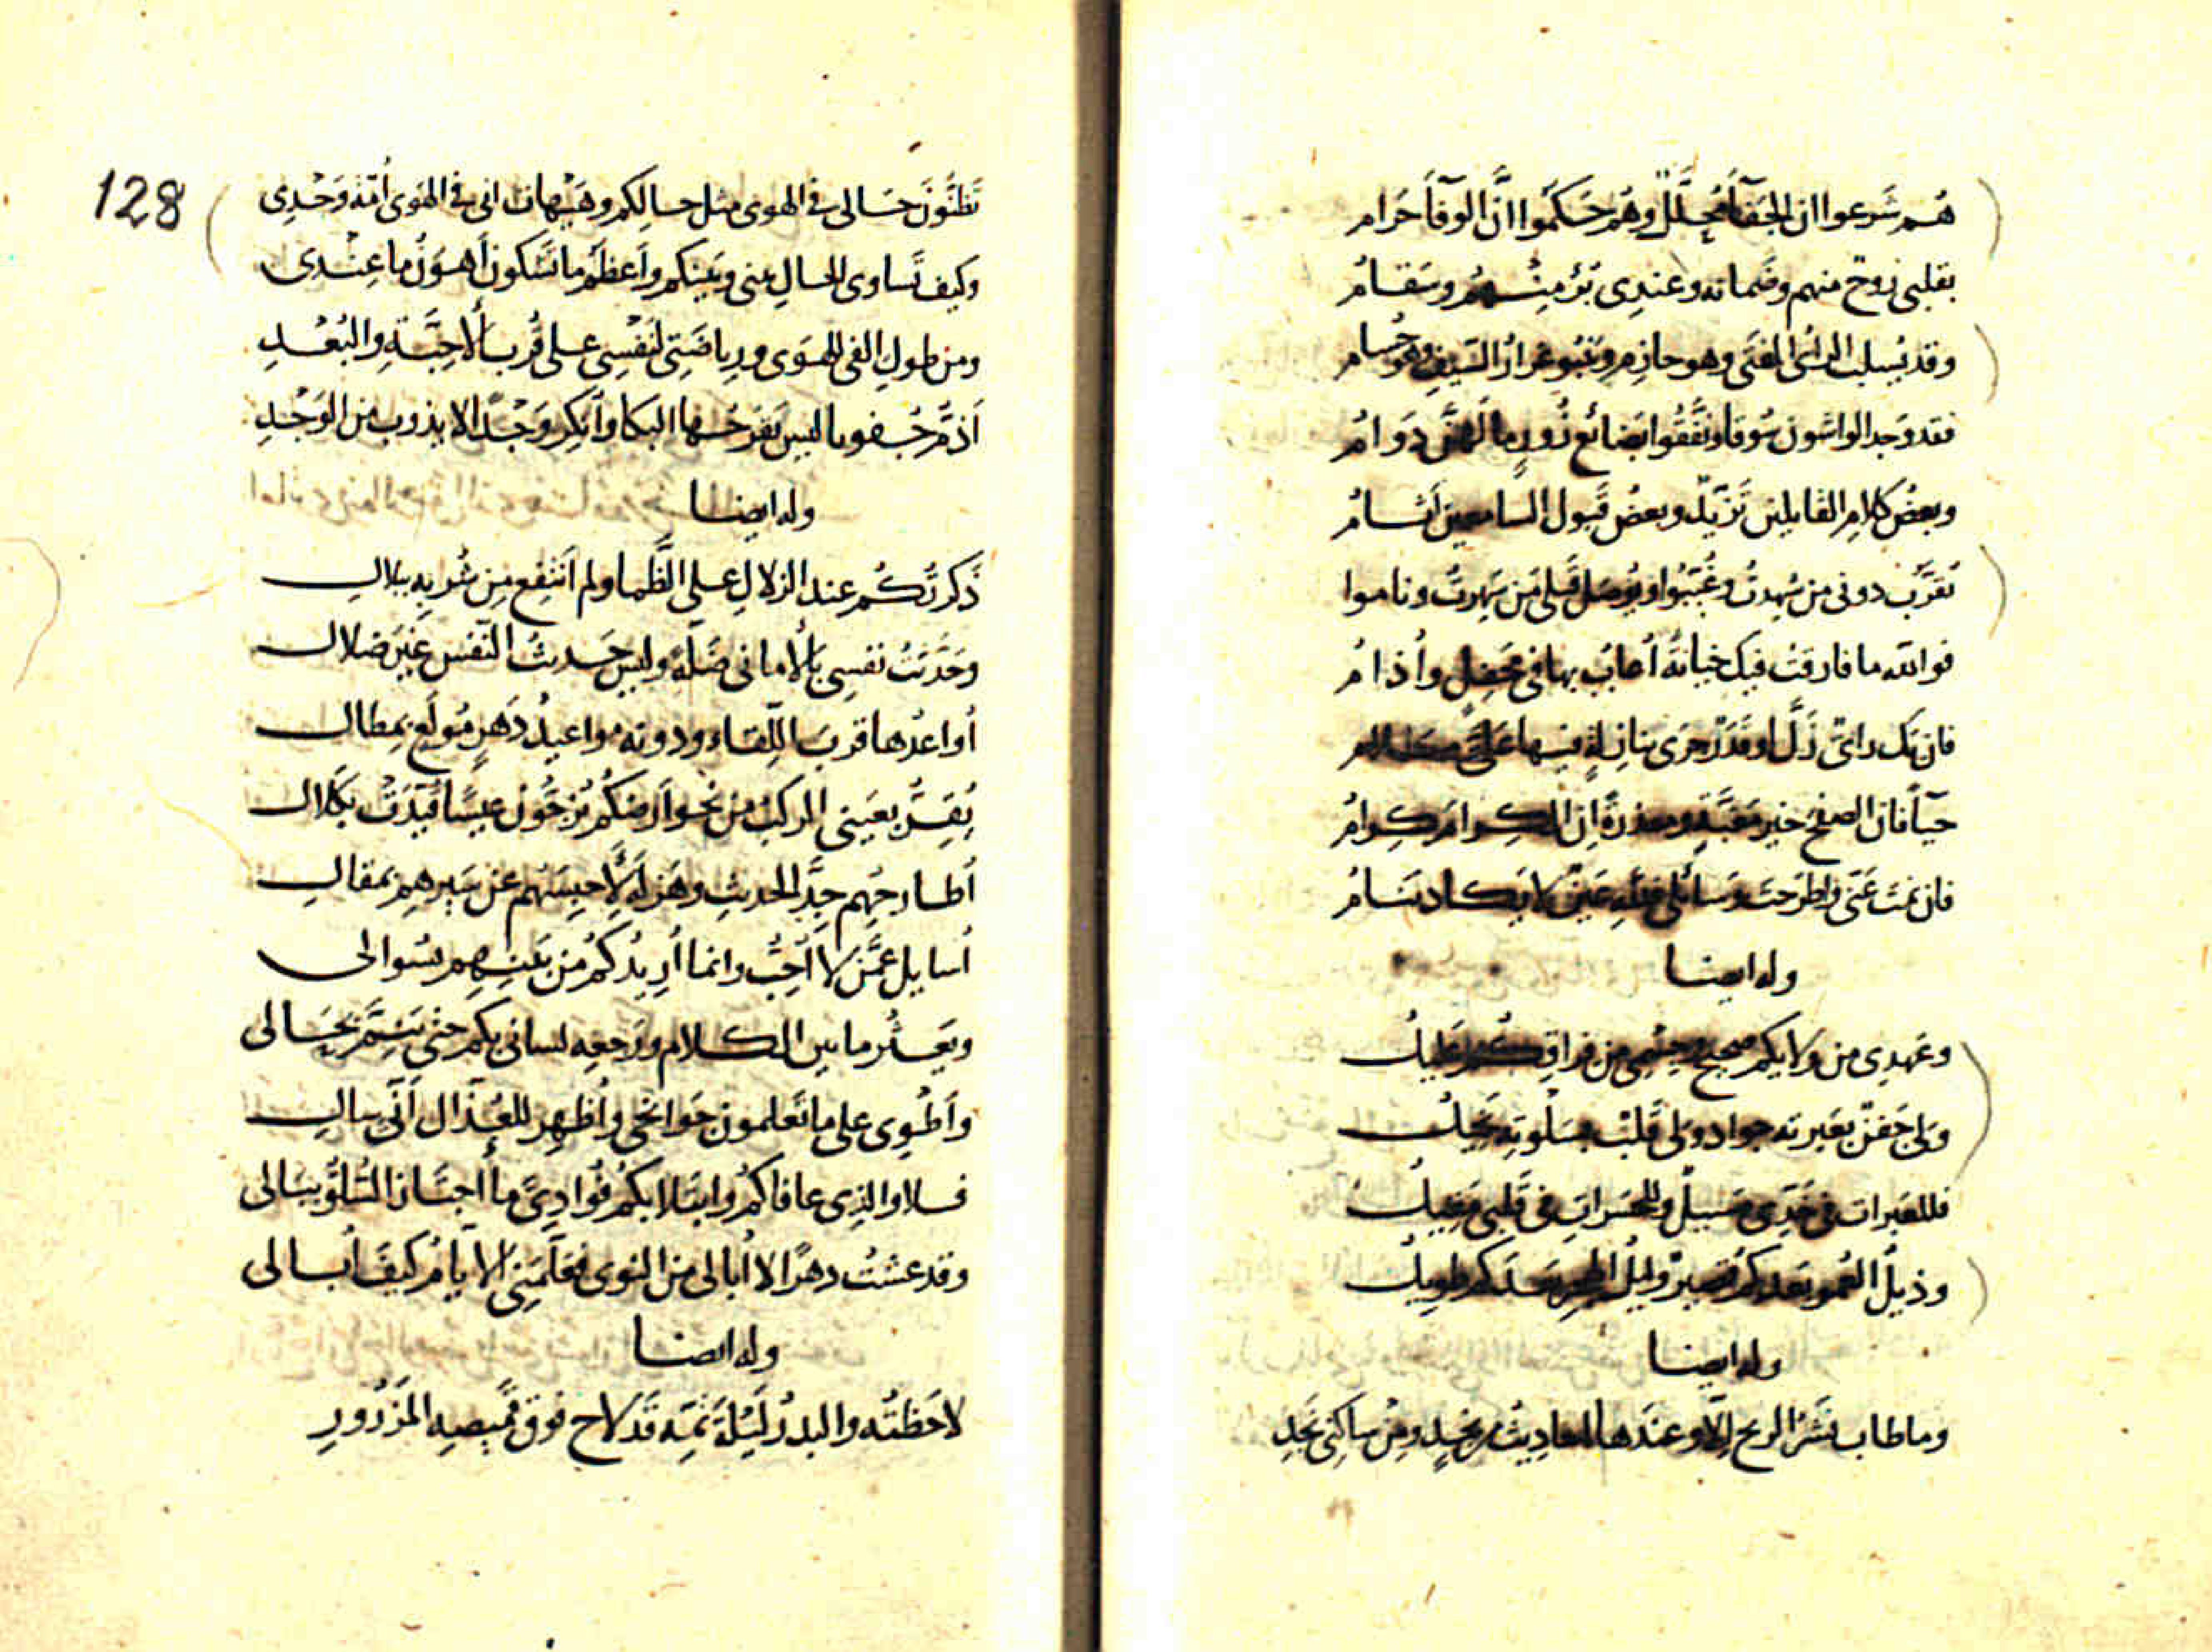 هُم شَرعوا ان الجَفآ مُحلَّلٌ وهُم حَكَموا انَّ الوفآ حَرام
بقلبى رَوحٌ منهم وضمانه وعندى بُرْ مِنْهُمُ وسَقامُ
وقد يُسلب الرأى الفتَى وهو حازم ويَنبُو غرارُ السَيفِ وهو حُسام
فقد وَجد الواشون سُوقا ونَفَّقُوا بَضائع زُورٍ ما لَهنَّ دَوامُ
وبعضُ كلامِ القايلين تَزَيّدٌ وبعضُ قَبول السامعين أثامُ
تقرَّبُ دونى من شَهِدتُ وغُيّبُوا ويُوصَل قَبلى مَن سَهِرتُ وناموا
فوالله ما فارقت فيك خيانةً أعابُ بها فى مَحفلٍ واُذامُ
فان يك رأىٌ زَلَّ او قَدَرٌ جرَى بنازلةٍ فيها علىَّ
حيآً فان الصفح خير مَغبَّةٍ ومعذرةً ان الكرامَ كِرامُ
فان نمت عَنّى واطّرحتَ وَسائلى فلله عَينٌ لا يكاد تنامُ
وله ايضا
وعَهدى من ولايكم صحيحٌ وجسْمى من فراقكُم عَليلُ
ولى جَفنٌ بعَبرته جوادٌ ولى قَلبٌ بسَلوته بَخيلُ
فللعَبرات فى خَدّى مَسيلٌ وللحَسَراتِ فى قَلبى مَقيلُ
وذيلُ العُمر بعدكُم قَصيرٌ وليلُ الهجر عندكم طويلُ
وله ايضا
وما طاب نَشرُ الريح إلّا وعندَها احاديثُ من نجدٍ ومِن ساكنى نَجدِ
128
تَظنّونَ حَالى فى الهوى مثل حالِكم وهَيْهات انى فى الهَوى أمّةٌ وَحْدِى
وكيف تَساوى الحالِ بينى وبَينكم وأعظَمُ ما تَشكون أهوَنُ ما عِنْدى
ومن طولِ الفى للهَوَى ورياضَتى لنَفْسى على قُربِ الاحِبَّةِ والبُعْدِ
أذمّ جُفونا ليس يَقرحُها البُكا وأنكِر وَجْدًا لا يذوب من الوَجْدِ
وله ايضا
ذَكرتُكُم عند الزلالِ على الظَّما ولم أنتفِع مِن شُربِه ببلالِ
وحَدّثتُ نفسِى بالامانى ضَلّةً وليس حَديثُ النّفس غَيرَ ضلالِ
اُواعدُها قربَ اللّقاء ودونه مواعيدُ دَهرٍ مُولَعٍ بمِطالِ
يُقِرُّ بعَينى الركبُ من نحوِ ارضكُم يُزجُّون عيسًا قُيّدَتْ بكَلالِ
أطارحُهم جِدَّ الحديثِ وهَزلَه لأحبِسَهُم عن سَيرهم بمَقالِ
اُسايل عمَّن لا أُحِبُّ وانما اُريدُكُم من بَينهِم بسُوالى
ويَعثُر ما بين الكلام ورَجعِه لسانى بكم حتى يَنِمَّ بحَالى
وأطْوِى على ما تَعلمون جَوانحى واُظهِر للعُذّال أنّى سالِ
فلا والذى عافاكُم وابتَلا بكم فُوادى ما اجتَاز السُلوُّ ببَالى
وقد عشتُ دهرًا لا اُبالى من النوى فعَلّمَنى الايّامُ كيفَ اُبالى
وله ايضا
لاحَظتُه والبدرُ لَيْلةَ تَمّه قَد لاح فوق قَميصِه المَزرُورِ